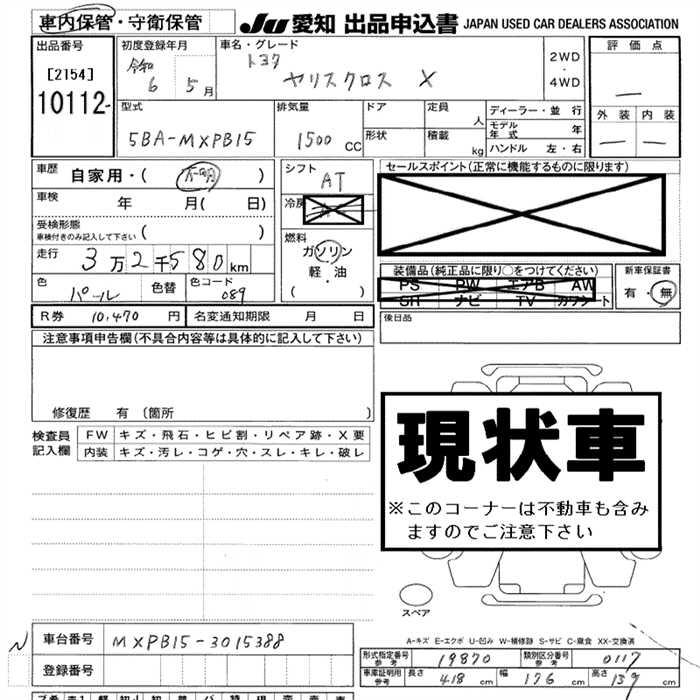 車内保管・守衛保管 JU 愛知 出品申込書 JAPAN USED CAR DEALERS ASSOCIATION
出品番号 初度登録年月 車名・グレード 評価点
[2154] 令和 トヨタ 2WD
・
10112- 6 5月 ヤリスクロス X 4WD ー
型式 排気量 ドア 定員 人 ディーラー・並行 外装 内装
5BA-MXPB15 1500 CC 形状 積載 kg モデル年式 年 ー ー
ハンドル 左・右
車歴 自家用・( 不明 ) シフト AT セールスポイント(正常に機能するものに限ります)
車検 年 月( 日) 冷房
受検形態 ( )
車検付きのみ記入して下さい
燃料
走行 3万2千580km ガソリン
軽・油
( )
装備品(純正品に限り○をつけてください) 新車保証書
PS PW エアB AW 有・無
SR ナビ TV カワシート
色 パール 色替 色コード 089
後日品
R券 10,470 円 名変通知期限 月 日
注意事項申告欄(不具合内容等は具体的に記入して下さい)
修復歴 有(箇所 )
現状車
※このコーナーは不動車も含み
ますのでご注意下さい
検査員 FW キズ・飛石・ヒビ割・リペア跡・X要
記入欄 内装 キズ・汚レ・コゲ・穴・スレ・キレ・破レ
スペア
A-キズ E-エクボ U-凹み W-補修跡 S-サビ C-腐食 XX-交換済
N 車台番号 MXPB15-3015388
登録番号
形式指定番号 参考 19870 類別区分番号 参考 0117
車庫証明用 参考 長さ 418 cm 幅 176 cm 高さ 159 cm